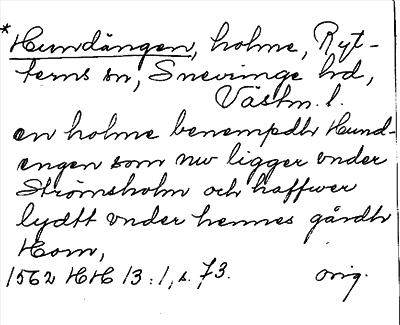 *Hundängen, holme, Ryt-
terns sn, Snevringe hd,
Västm. l.
en holme benempdh Hund-
engen som nw ligger vnder
Strömsholm och haffwer
lydtt vnder hennes gårdh
Horn,
1562 HH 13:1, s. 73. orig.